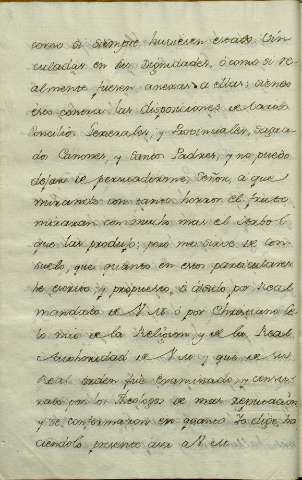 como si siempre huviesen estado vin
culadas en sus Dignidades, ó como si re
almente fuesen anexas a ellas: siendo
esto contra las disposiciones de varios
Concilios Generales, y Provinciales, Sagra
dos Canones, y Santos Padres, y no puedo
dejar de persuadirme, Señor, a que
mirando con tanto horror el fruto
miraran con mucho mas el Arbol
que las produjo; pero me sirve de con
suelo, que quanto en estos particulares
he escrito, y propuesto, a sido por Real
mandato de V. M. ó por Christiano ze
lo mio de la Religion, y de la Real
Authoridad de V. M. y que de su
Real orden fue examinado, y consul
tado por los Theologos de mas reputacion
y se conformaron en quanto Yo dije, ha
ciendolo presente assi a V. M.